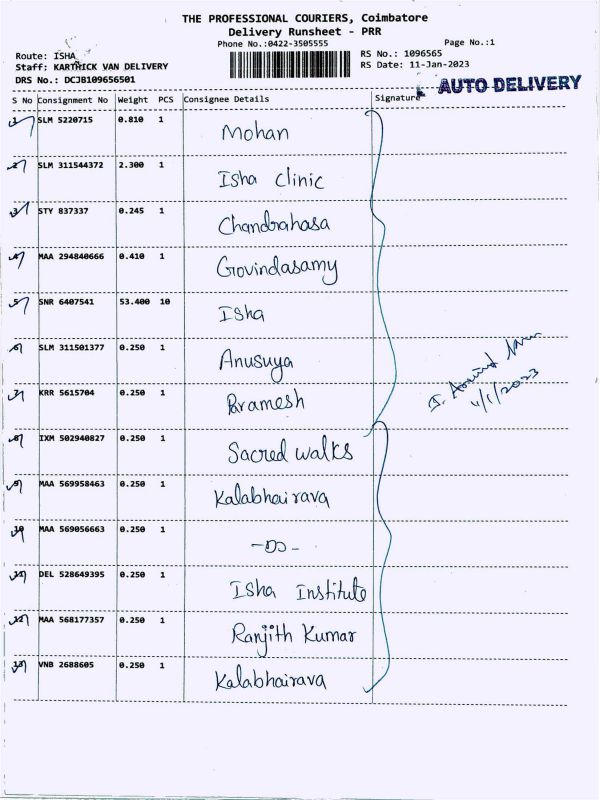 THE PROFESSIONAL COURIERS, Coimbatore
Delivery Runsheet - PRR
Phone No.:0422-3505555
Page No.:1
Route: ISHA
Staff: KARTHICK VAN DELIVERY
DRS No.: DCJB109656501
RS No.: 1096565
RS Date: 11-Jan-2023
AUTO DELIVERY
S No Consignment No Weight PCS Consignee Details Signature
1 SLM 5220715 0.810 1 Mohan
2 SLM 311544372 2.300 1 Isha Clinic
3 STY 837337 0.245 1 Chandrahasa
4 MAA 294840666 0.410 1 Govindasamy
5 SNR 6407541 53.400 10 Isha
6 SLM 311501377 0.250 1 Anusuya
7 KRR 5615704 0.250 1 Paramesh
8 IXM 502940827 0.250 1 Sacred walks
9 MAA 569958463 0.250 1 Kalabhairava
10 MAA 569056663 0.250 1 -Do-
11 DEL 528649395 0.250 1 Isha Institute
12 MAA 568177357 0.250 1 Ranjith Kumar
13 VNB 2688605 0.250 1 Kalabhairava
11/1/2023